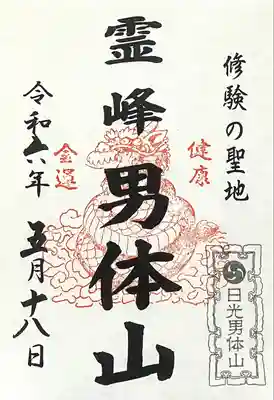 修験の聖地
健康
霊峰男体山
金運
令和六年 五月十八日
日光男体山